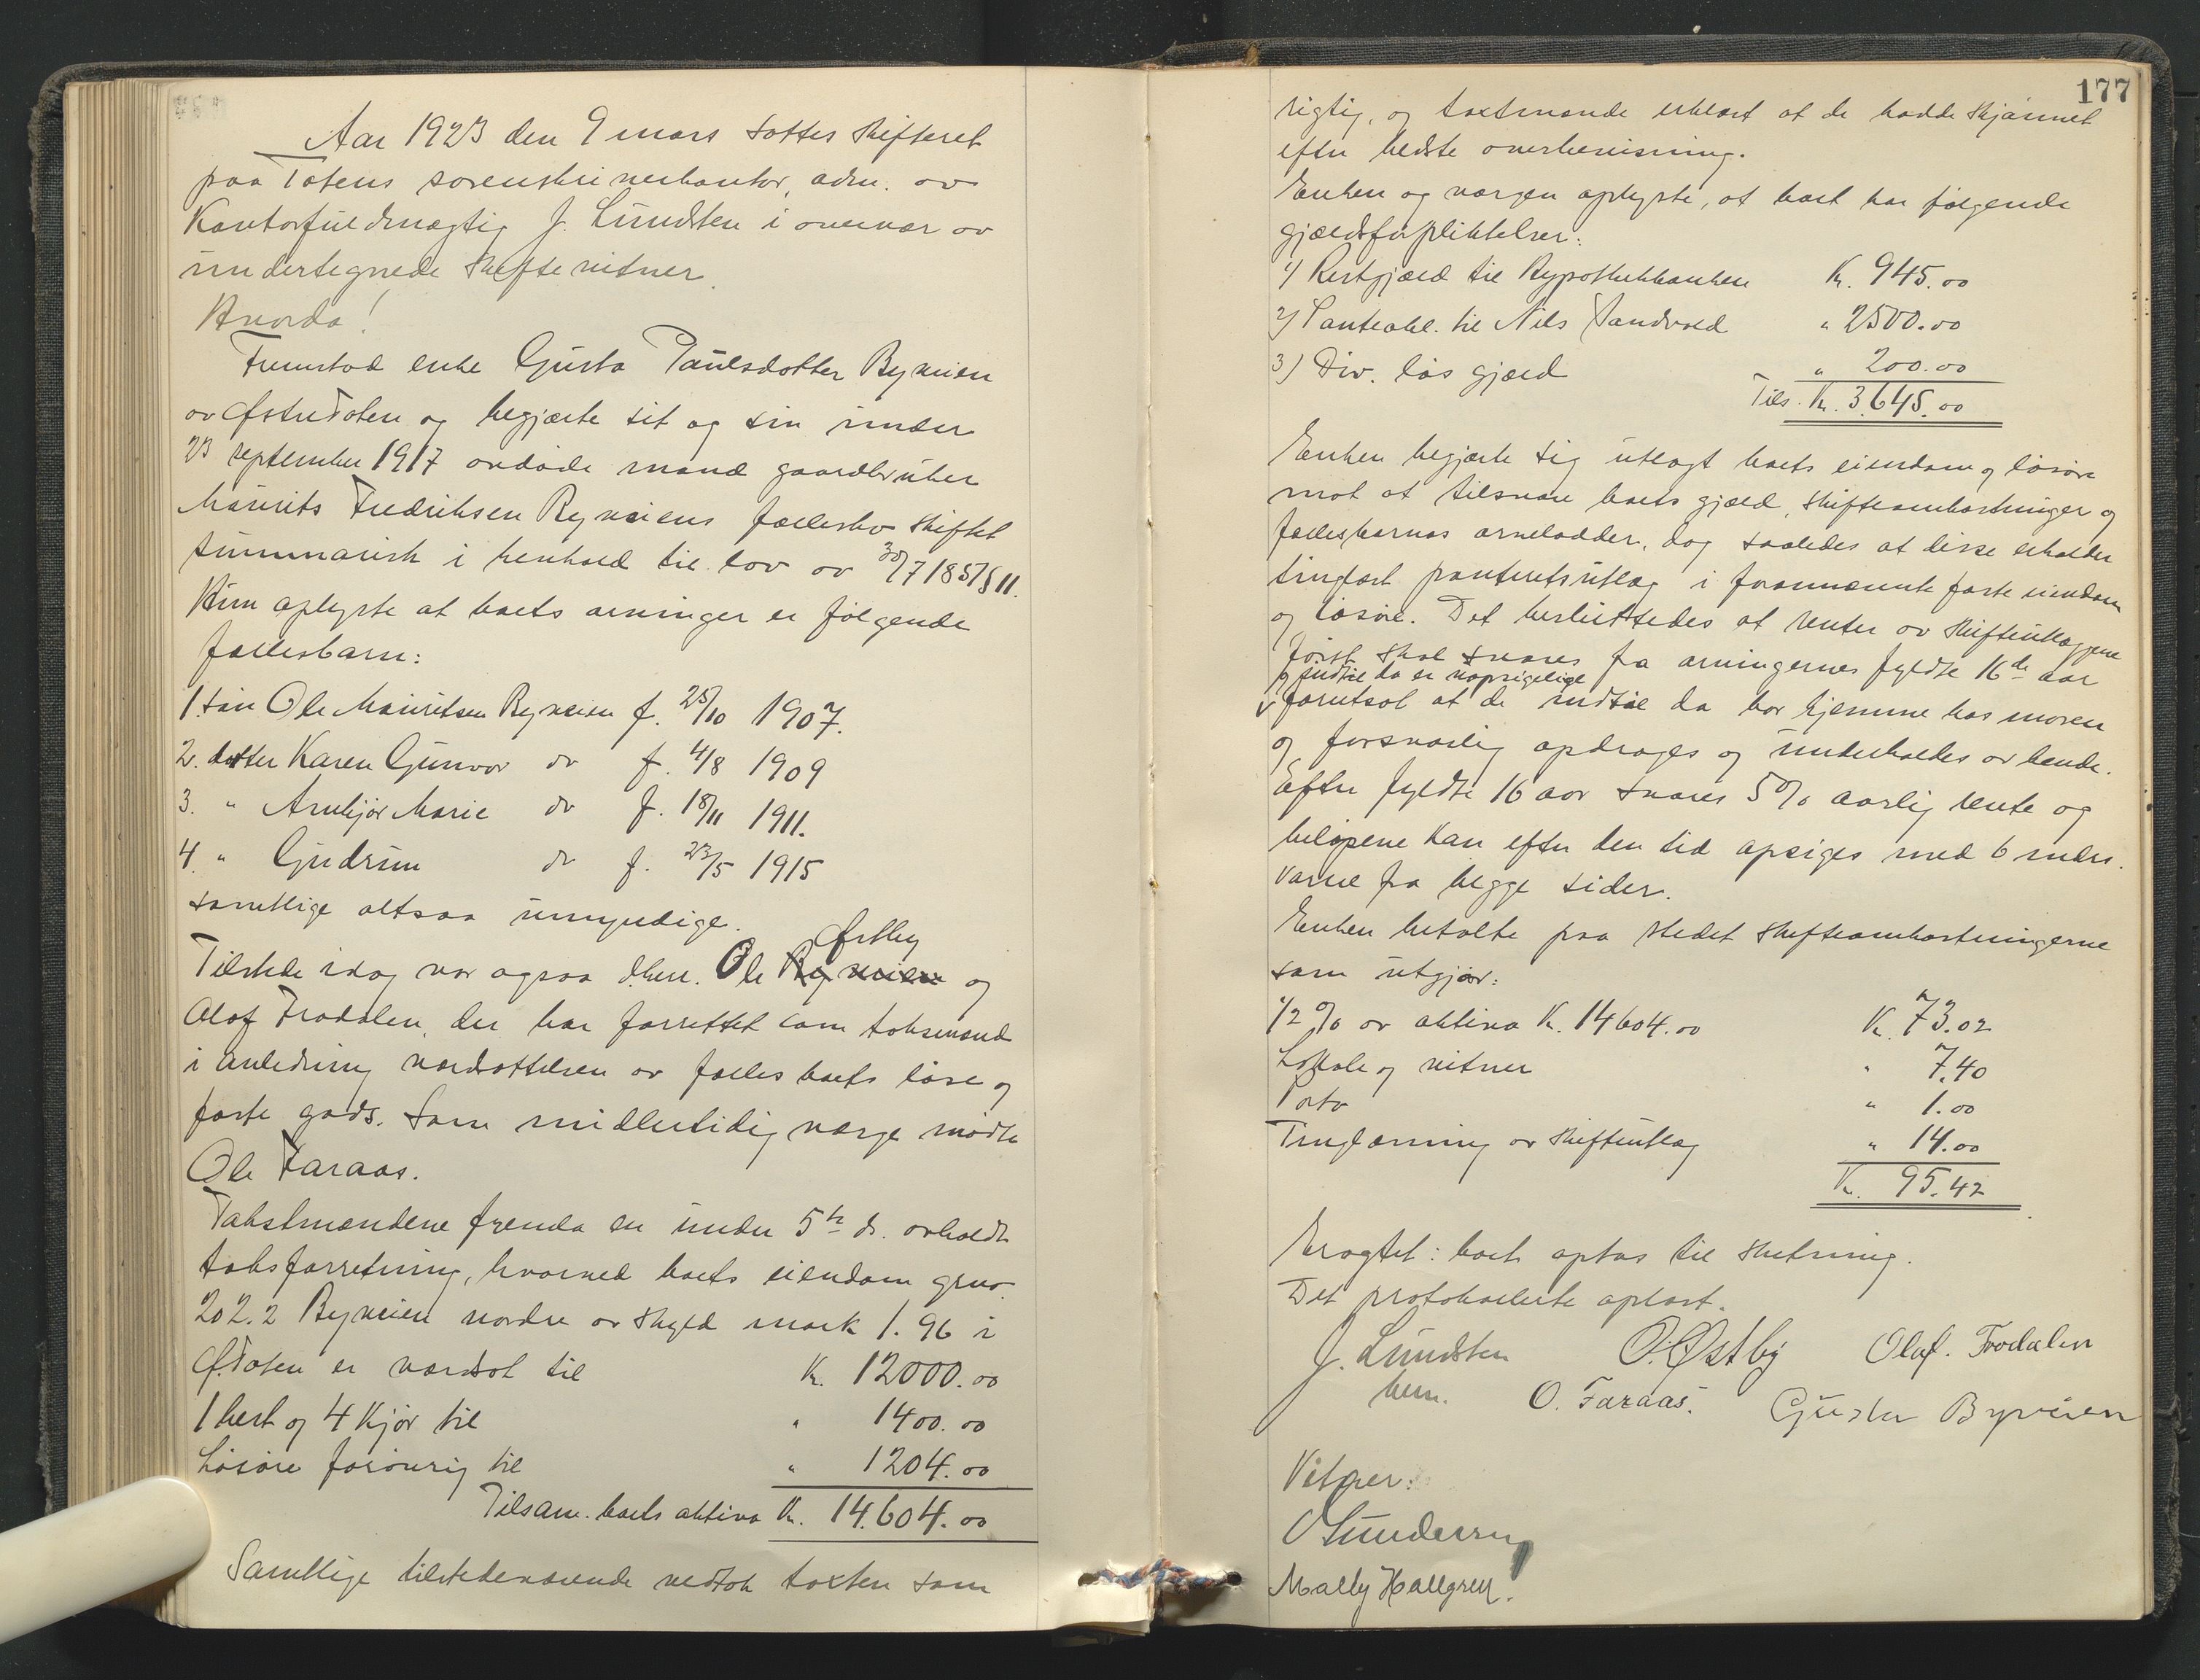 Aar 1923 den 9 mars sattes skifteret
paa Totens sorenskriverkontor, adm. av
Kontorfuldmægtig J. Lundsten i overvær av
undertegnede skiftevitner.
Hvorda!
Fremstod enke Gusta Paulsdotter Byveien
av Østre Toten og begjærte sit og sin under
23 september 1917 avdøde mand gaardbruker
Maurits Fredriksen Byveiens fællesbo skiftet
summarisk i henhold til lov av 30/7 1851 § 11.
Hun oplyste at boets arvinger er følgende
fællesbarn:
1. søn Ole Mauritsen Byveien f. 25/10 1907.
2. datter Karen Gunvor do f. 4/8 1909
3. " Arnbjør Marie do f. 18/11 1911.
4. " Gudrun do f. 23/5 1915
samtlige altsaa umyndige.
Østby
Tilstede idag var ogsaa d'herr. Ole Byveien og
Olaf Frodalen, der har forrettet som taksmænd
i anledning værdsættelsen av fællesboets løse og
faste gods. Som midlertidig værge mødte
Ole Faraas.
Takstmændene fremla en under 5te ds. avholdt
taksforretning, hvorved boets eiendom grno.
202.2 Byveien nordre av skyld mark 1.96 i
Ø. Toten er værdsat til Kr. 12000.00
1 hest og 4 kjør til " 1400.00
Løsøre forøvrig til " 1204.00
Tilsam. boets aktiva Kr. 14.604.00
Samtlige tilstedeværende vedtok taxten som
177
rigtig, og taxtmænde erklært at de hadde skjønnet
efter bedste overbevisning.
Enken og værgen oplyste, at boet har følgende
gjældsforpliktelser:
1) Restgjæld til Hypothekbanken Kr. 945.00
2) Panteobl. til Nils Sandvold " 2500.00
3) Div. løs gjæld " 200.00
Tils. Kr. 3.645.00
Enken begjærte sig utlagt boets eiendom og løsøre
mot at tilsvare boets gjæld, skifteomkostninger og
fællesbarnas arvelodder, dog saaledes at disse erholder
tinglæst panteretsutlæg i forannævnte faste eiendom
og løsøre. Det besluttedes at renter av skifteutlæggene
først skal svares fra arvingernes fyldte 16de aar
og indtil da er uopsigelige
v forutsat at de indtil da bor hjemme hos moren
og forsvarlig opdrages og underholdes av hende.
Efter fyldte 16 aar svares 5% aarlig rente og
beløpene kan efter den tid opsiges med 6 mdrs.
varsel fra begge sider.
Enken betalte paa stedet skifteomkostningerne
som utgjør:
1/2 % av aktiva Kr. 14604.00 Kr. 73.02
Lokale og vitner " 7.40
Porto " 1.00
Tinglæsning av skifteutlæg " 14.00
Kr. 95.42
Eragtet: boet optas til slutning.
Det protokollerte oplæst.
J. Lundsten O. Østby Olaf. Frodalen
bem. O. Faraas. Gusta Byveien
Vitner:
Mally Hallgren.